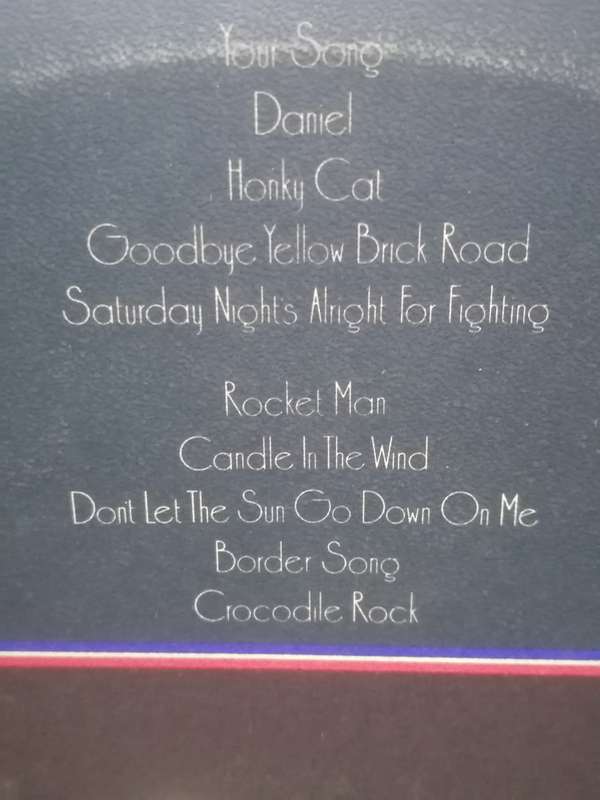 Your Song
Daniel
Honky Cat
Goodbye Yellow Brick Road
Saturday Night's Alright For Fighting
Rocket Man
Candle In The Wind
Don't Let The Sun Go Down On Me
Border Song
Crocodile Rock